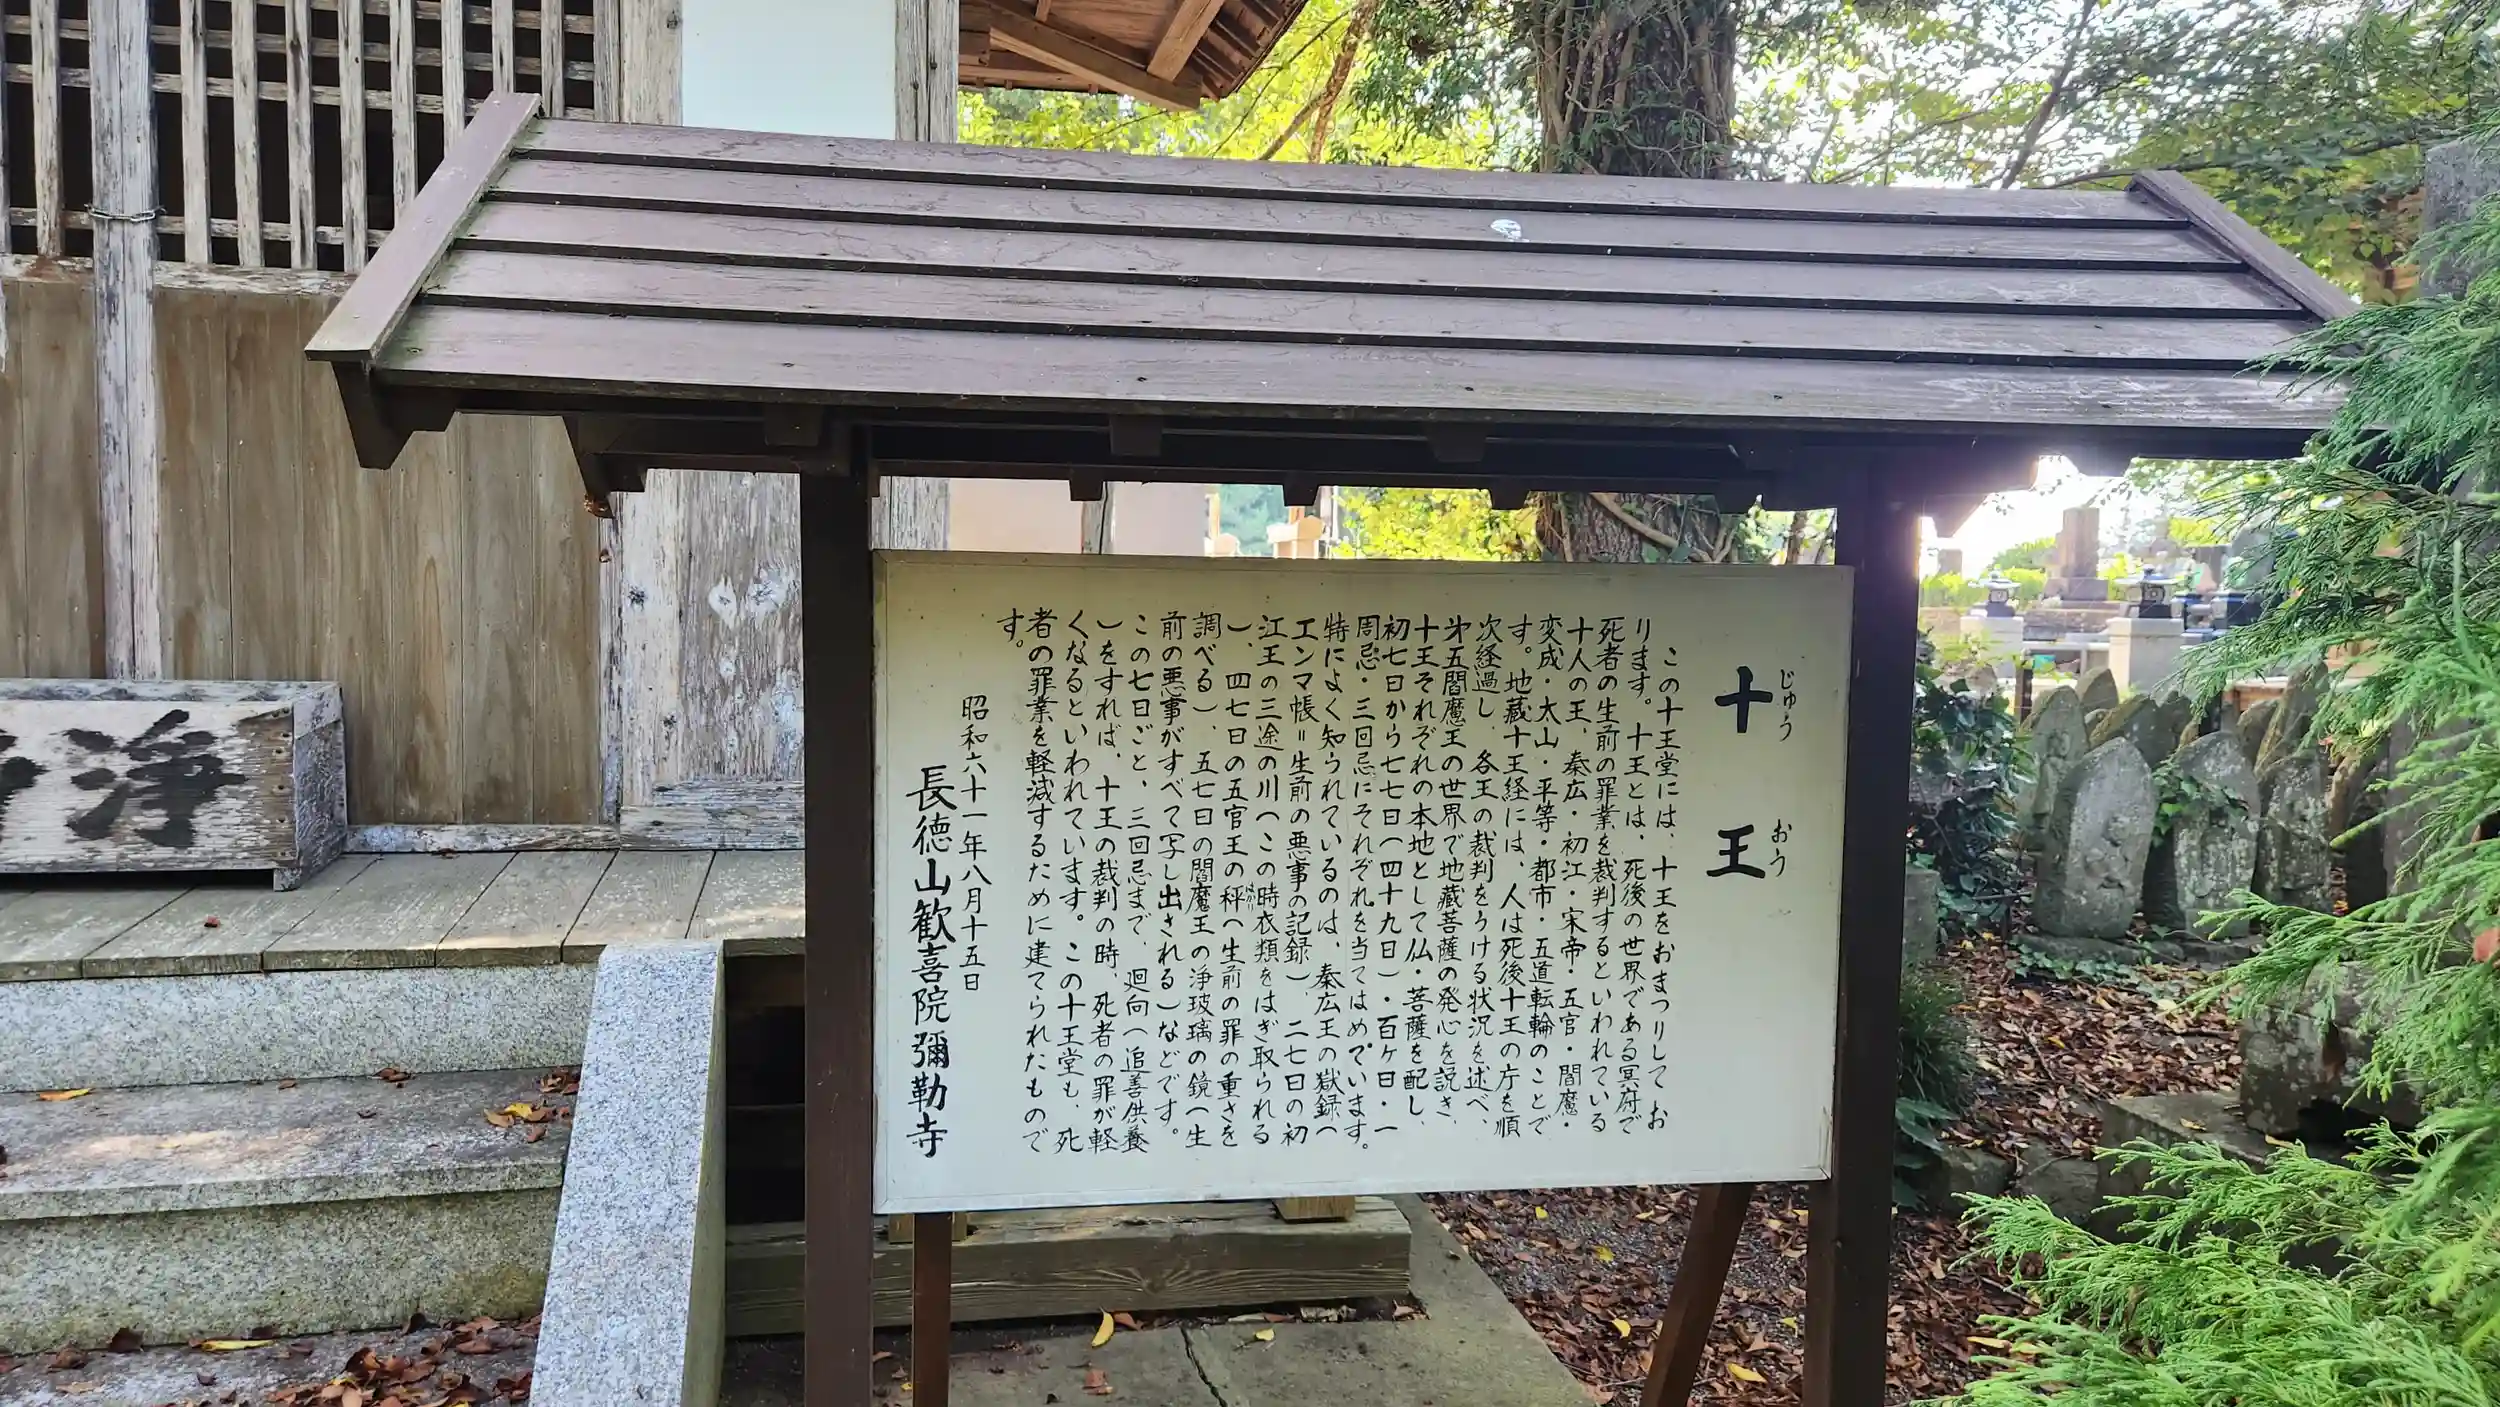 十王
じゅう
おう
この十王堂には、十王をおまつりしてお
ります。十王とは、死後の世界である冥府で
死者の生前の罪業を裁判するといわれている
十人の王、秦広・初江・宋帝・五官・閻魔・
変成・太山・平等・都市・五道転輪のことで
す。地蔵十王経には、人は死後十王の庁を順
次経過し、各王の裁判をうける状況を述べ、
第五閻魔王の世界で地蔵菩薩の発心を説き、
十王それぞれの本地として仏・菩薩を配し、
初七日から七七日(四十九日)・百ヶ日・一
周忌・三回忌にそれぞれを当てはめています。
特によく知られているのは、秦広王の獄録(
エンマ帳=生前の悪事の記録)、二七日の初
江王の三途の川(この時衣類をはぎ取られる
)、四七日の五官王の秤(生前の罪の重さを
はかり
調べる)、五七日の閻魔王の浄玻璃の鏡(生
前の悪事がすべて写し出される)などです。
この七日ごと、三回忌まで、廻向(追善供養
)をすれば、十王の裁判の時、死者の罪が軽
くなるといわれています。この十王堂も、死
者の罪業を軽減するために建てられたもので
す。
昭和六十一年八月十五日
長徳山歓喜院彌勒寺
浄